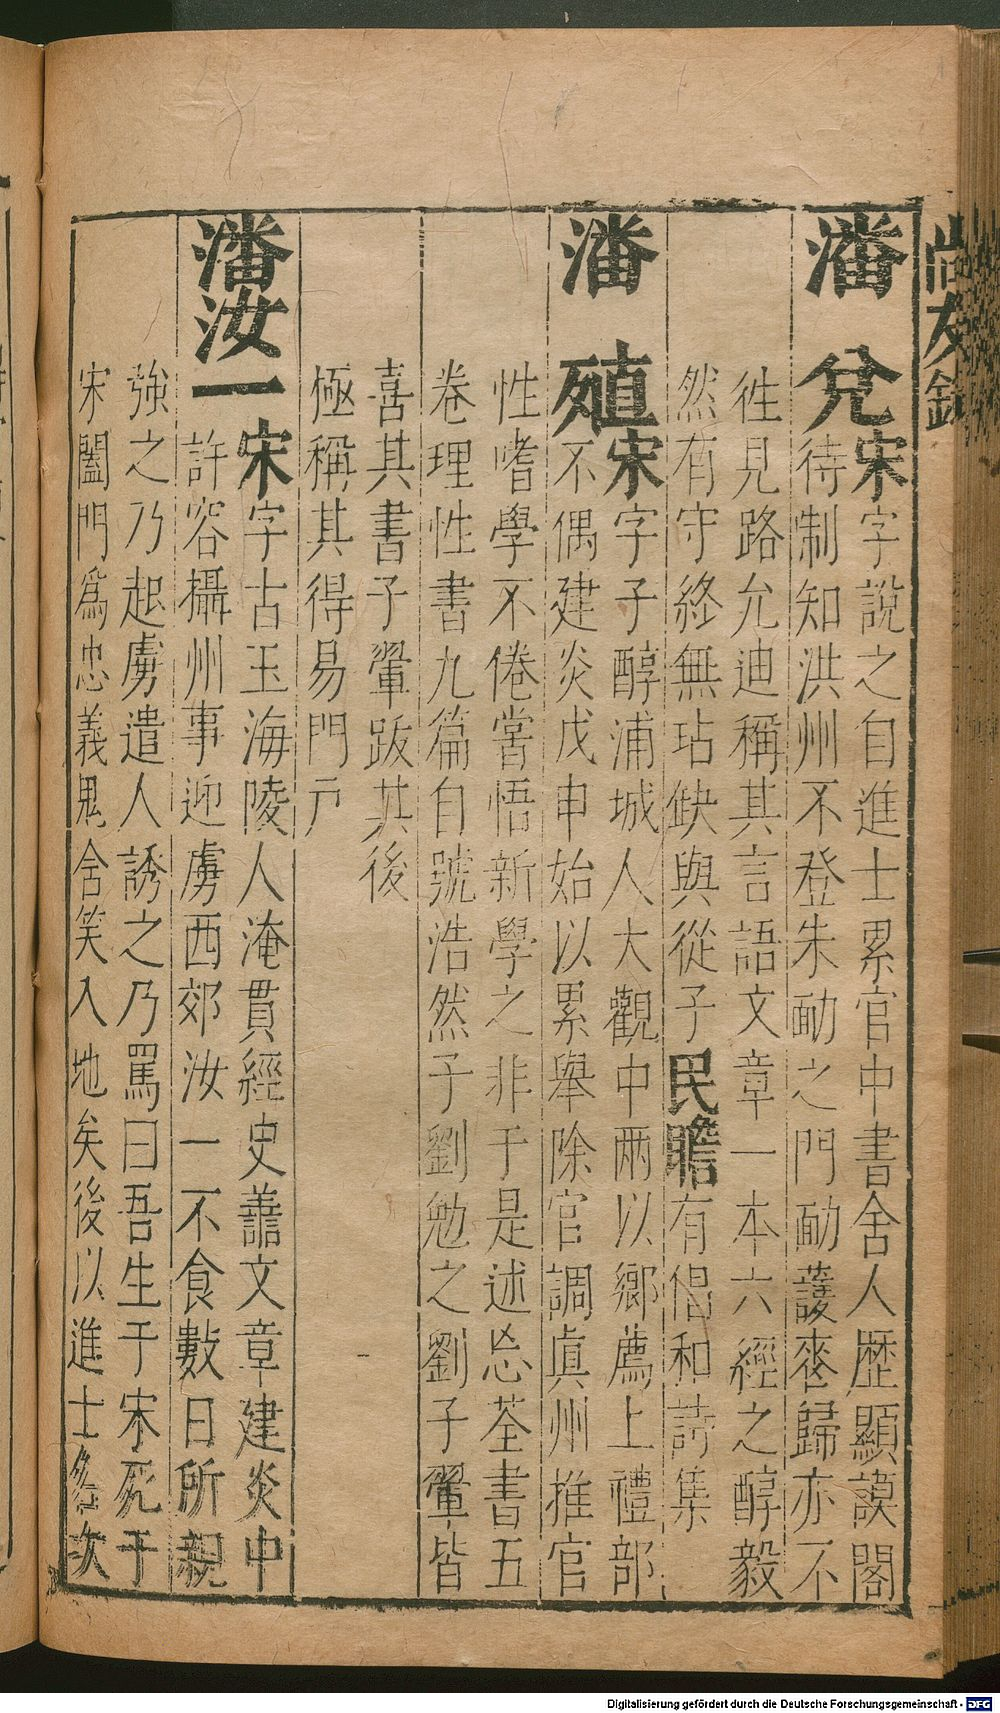 尚友錄
潘兌宋字說之自進士累官中書舍人歷顯謨閣
待制知洪州不登朱勔之門勔護喪歸亦不
徃見路允迪稱其言語文章一本六經之醇毅
然有守終無玷缺與從子民瞻有倡和詩集
潘殖宋字子醇浦城人大觀中兩以鄉薦上禮部
不偶建炎戊申始以累舉除官調眞州推官
性嗜學不倦嘗悟新學之非于是述忘筌書五
卷理性書九篇自號浩然子劉勉之劉子翬皆
喜其書子翬跋其後
極稱其得易門戶
潘汝一宋字古玉海陵人淹貫經史譱文章建炎中
許容攝州事迎虜西郊汝一不食數日所親
強之乃起虜遣人誘之乃罵曰吾生于宋死于
宋闔門爲忠義鬼含笑入地矣後以進士多次
Digitalisierung gefördert durch die Deutsche Forschungsgemeinschaft - DFG